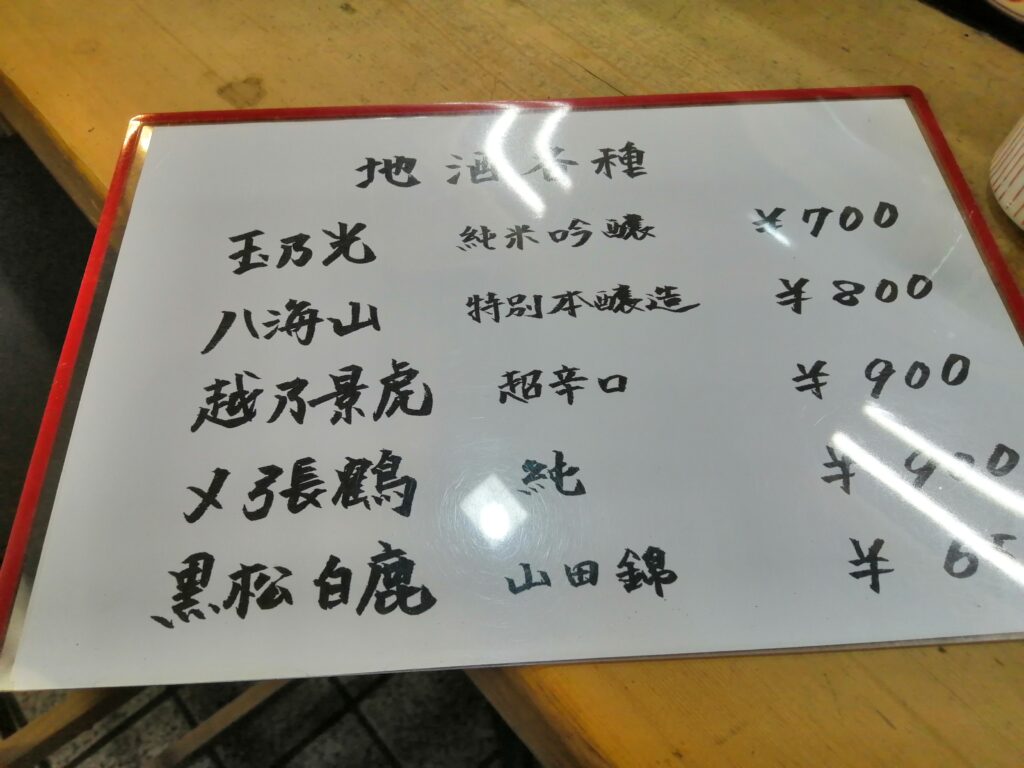 地酒各種
玉乃光 純米吟醸 ¥700
八海山 特別本醸造 ¥800
越乃景虎 超辛口 ¥900
〆張鶴 純 ¥900
黒松白鹿 山田錦 ¥